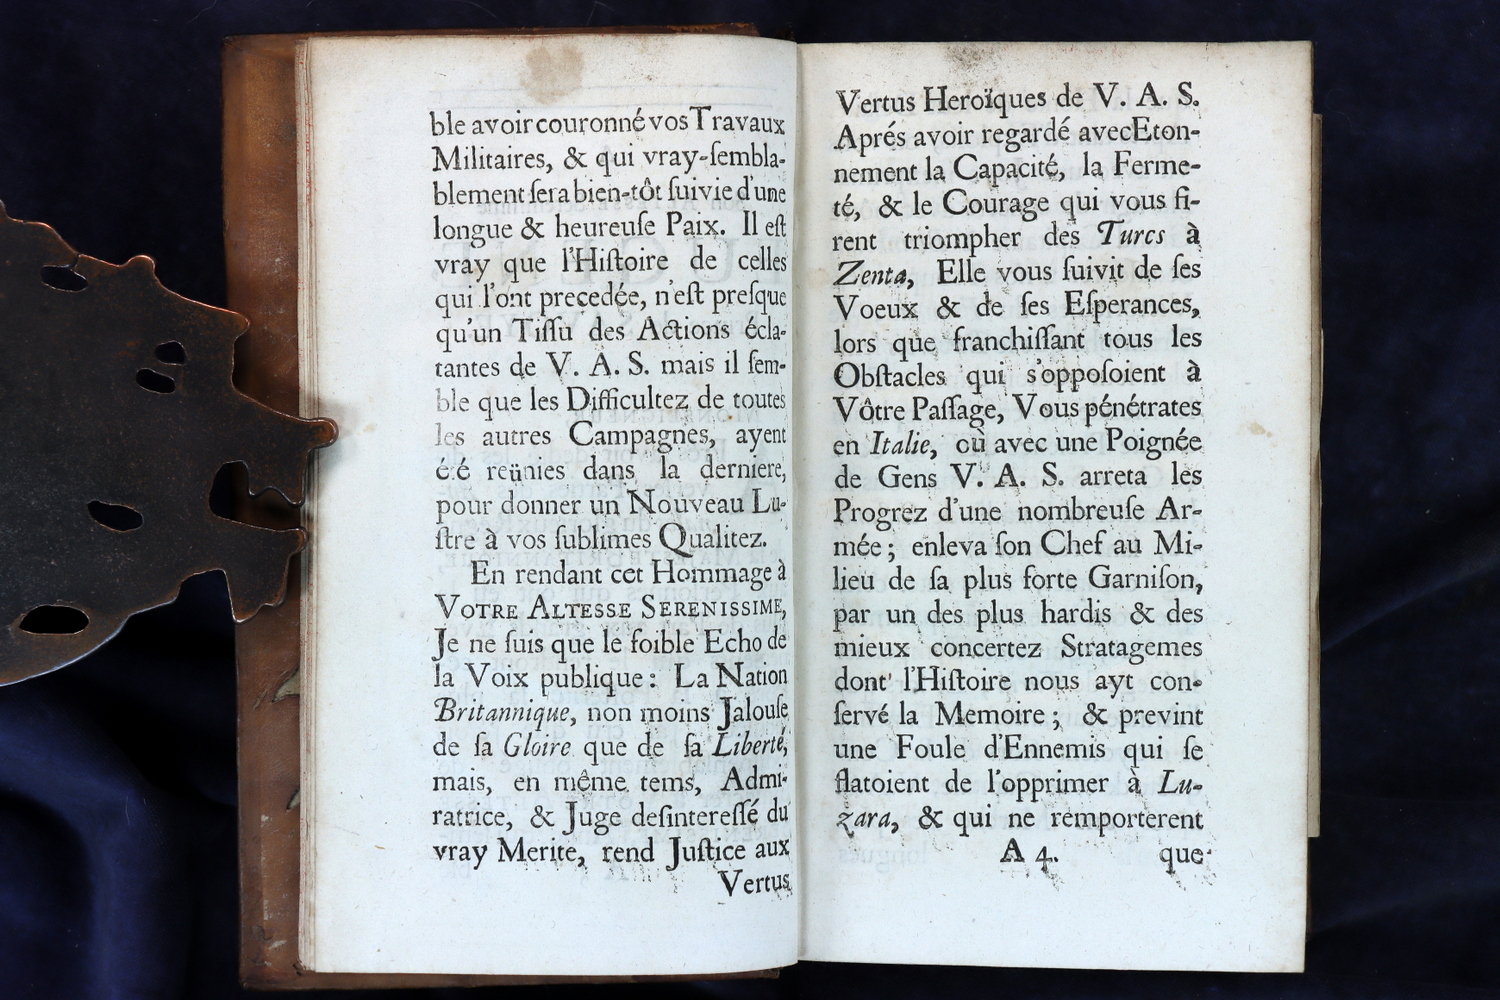 ble avoir couronné vos Travaux
Militaires, & qui vray-ſembla-
blement ſera bien-tôt ſuivie d'une
longue & heureuſe Paix. Il eſt
vray que l'Hiſtoire de celles
qui l'ont precedée, n'eſt preſque
qu'un Tiſſu des Actions écla-
tantes de V. A. S. mais il ſem-
ble que les Difficultez de toutes
les autres Campagnes, ayent
été reünies dans la derniere,
pour donner un Nouveau Lu-
ſtre à vos ſublimes Qualitez.
En rendant cet Hommage à
VOTRE ALTESSE SERENISSIME,
Je ne ſuis que le foible Echo de
la Voix publique: La Nation
Britannique, non moins Jalouſe
de ſa Gloire que de ſa Liberté,
mais, en même tems, Admi-
ratrice, & Juge deſintereſſé du
vray Merite, rend Juſtice aux
Vertus
Vertus Heroïques de V. A. S.
Aprés avoir regardé avec Eton-
nement la Capacité, la Ferme-
té, & le Courage qui vous fi-
rent triompher des Turcs à
Zenta, Elle vous ſuivit de ſes
Voeux & de ſes Eſperances,
lors que franchiſſant tous les
Obſtacles qui s'oppoſoient à
Vôtre Paſſage, Vous pénétrates
en Italie, où avec une Poignée
de Gens V. A. S. arreta les
Progrez d'une nombreuſe Ar-
mée; enleva ſon Chef au Mi-
lieu de ſa plus forte Garniſon,
par un des plus hardis & des
mieux concertez Stratagemes
dont l'Hiſtoire nous ayt con-
ſervé la Memoire; & prevint
une Foule d'Ennemis qui ſe
flatoient de l'opprimer à Lu-
zara, & qui ne remporterent
A 4. que